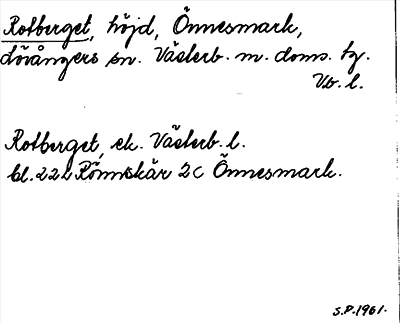 Rotberget, höjd, Önnesmark,
Lövångers sn. Västerb. m. doms. tg.
Vb. l.
Rotberget, ek. Västerb. l.
bl. 22L Rönnskär 2c Önnesmark.
S.P. 1961.